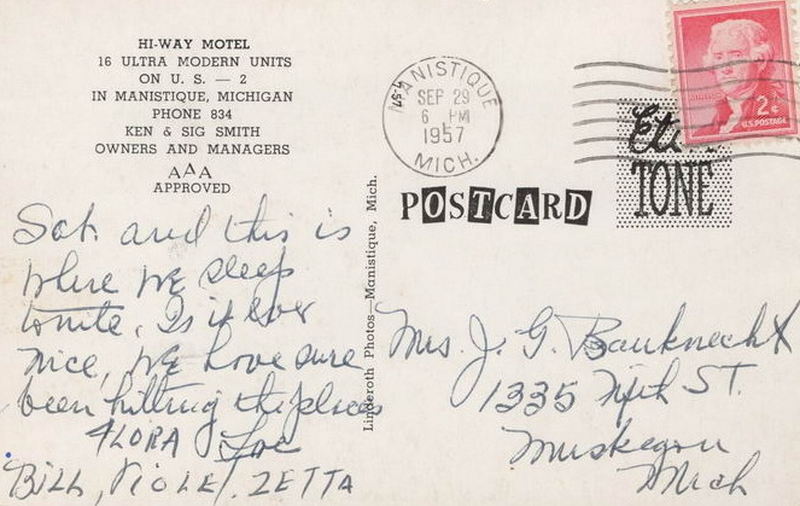 HI-WAY MOTEL
16 ULTRA MODERN UNITS
ON U. S. — 2
IN MANISTIQUE, MICHIGAN
PHONE 834
KEN & SIG SMITH
OWNERS AND MANAGERS
AAA
APPROVED
Sat. and this is
where we sleep
tonite, Is it ever
nice, We have sure
been hitting the places
FLORA Love
BILL, VIOLET, ZETTA
Linderoth Photos—Manistique, Mich.
MANISTIQUE
SEP 29
6 PM
1957
MICH.
2¢
U.S. POSTAGE
TONE
POSTCARD
Mrs. J. G. Bauknecht
1335 Fifth ST.
Muskegon
Mich